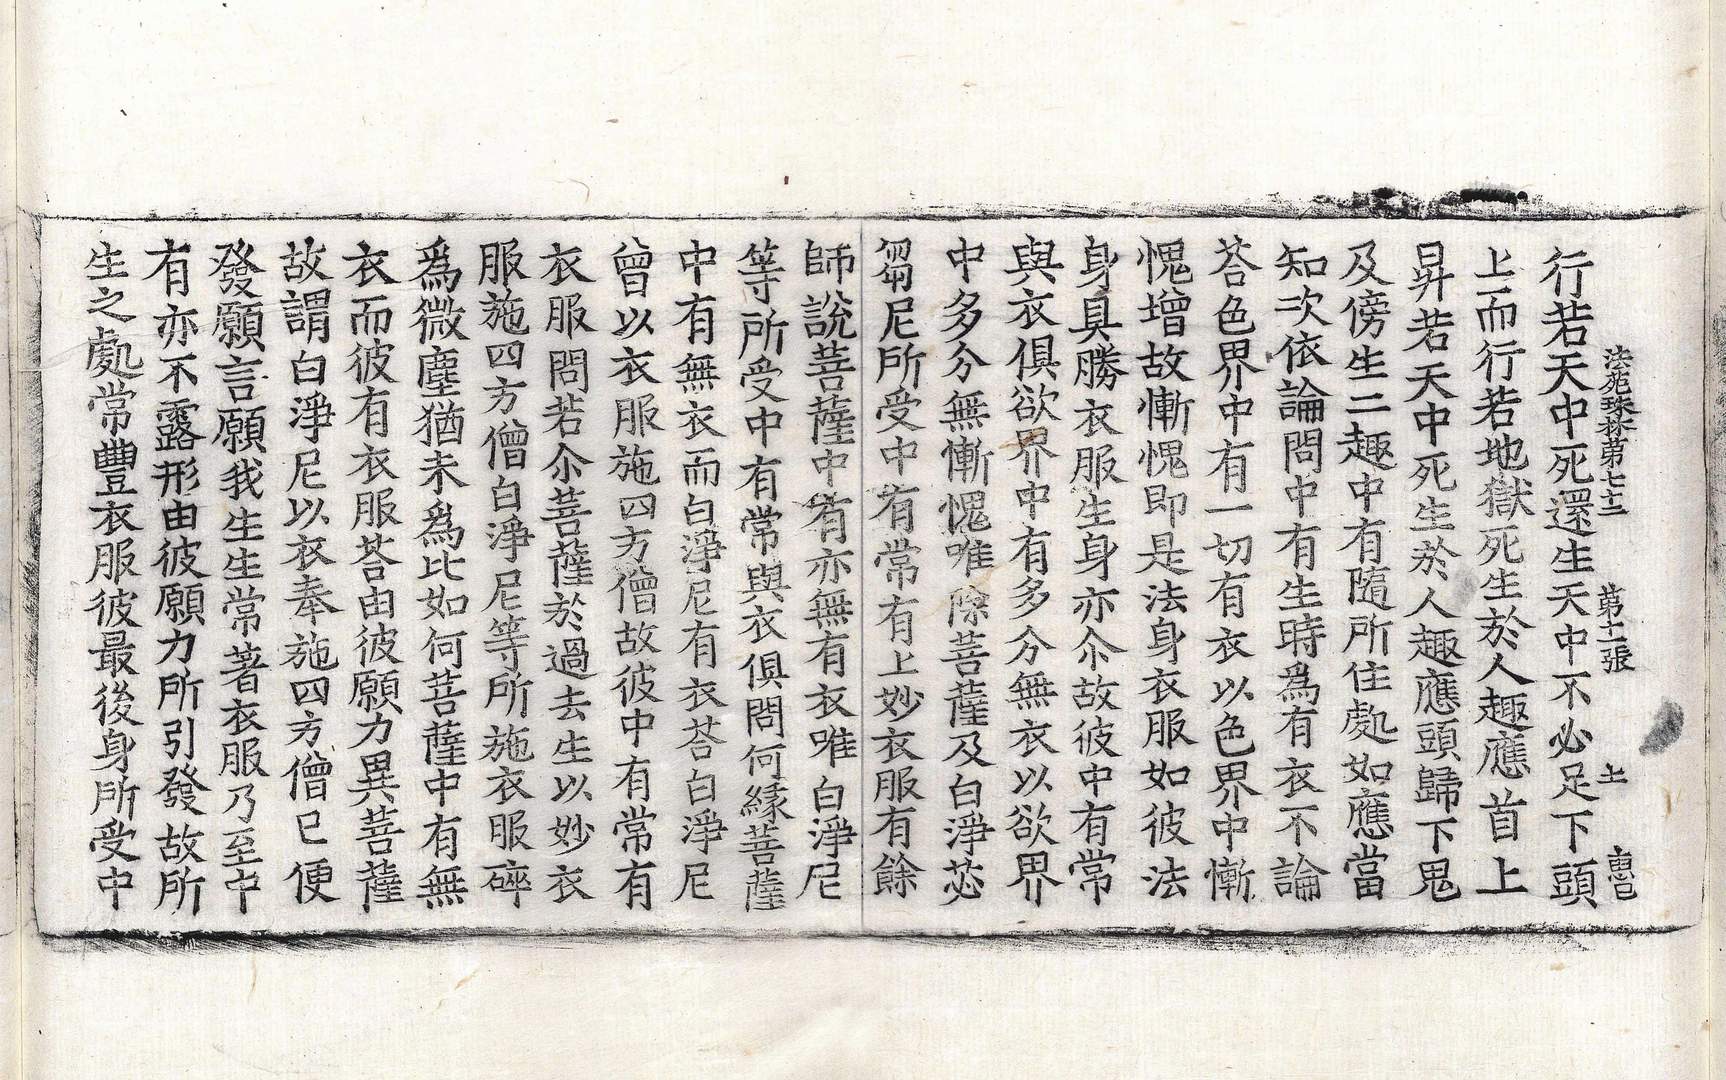 法苑珠林第七十二 第 張 惠
行若天中死還生天中不必足下頭
上而行若地獄死生於人趣應首上
昇若天中死生於人趣應頭歸下鬼
及傍生二趣中有隨所住處如應當
知次依論問中有生時爲有衣不論
荅色界中有一切有衣以色界中慚
愧增故慚愧即是法身衣服如彼法
身具勝衣服生身亦尒故彼中有常
與衣俱欲界中有多分無衣以欲界
中多分無慚愧唯除菩薩及白淨苾
蒭尼所受中有常有上妙衣服有餘
師說菩薩中有亦無有衣唯白淨尼
等所受中有常與衣俱問何緣菩薩
中有無衣而白淨尼有衣荅白淨尼
曾以衣服施四方僧故彼中有常有
衣服問若尒菩薩於過去生以妙衣
服施四方僧白淨尼等所施衣服碎
爲微塵猶未爲比如何菩薩中有無
衣而彼有衣服荅由彼願力異菩薩
故謂白淨尼以衣奉施四方僧已便
發願言願我生生常著衣服乃至中
有亦不露形由彼願力所引發故所
生之處常豐衣服彼最後身所受中